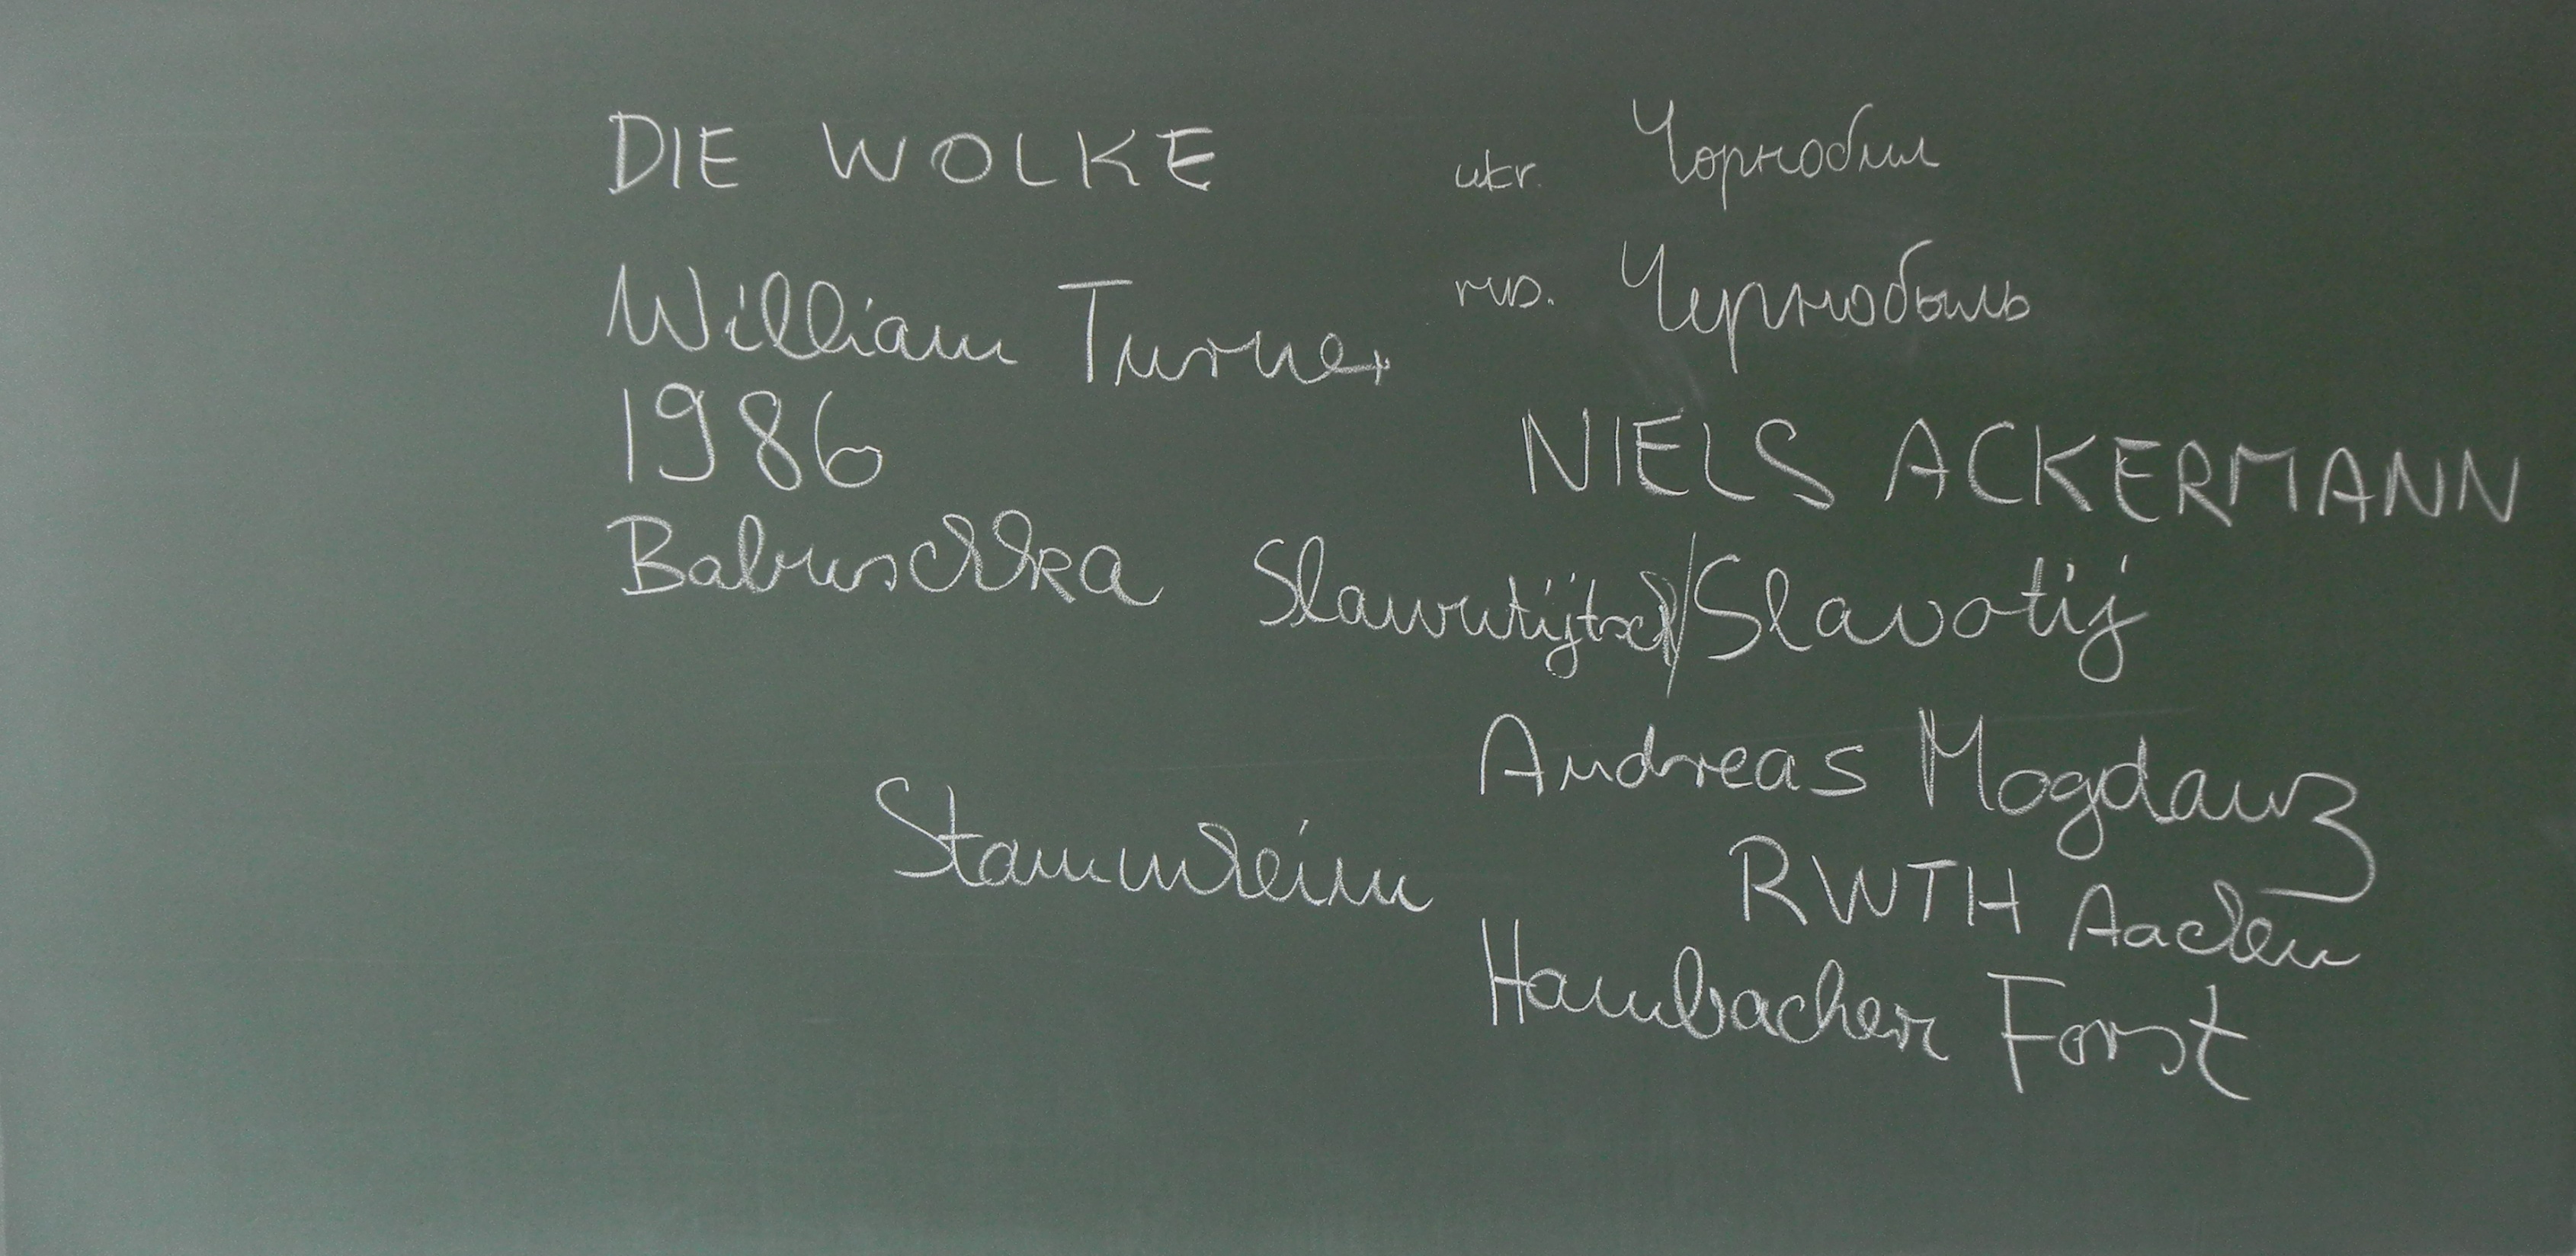 DIE WOLKE
ukr. Чорнобил
rus. Чернобыль
William Turner
1986
NIELS ACKERMANN
Babuschka
Slawutijtsch/Slavotij
Andreas Mogdanz
Stammheim
RWTH Aachen
Hambacher Forst